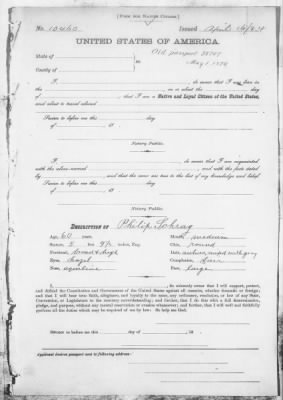 [FORM FOR NATIVE CITIZEN.]
No. 10460 Issued April
UNITED STATES OF AMERICA.
State of Old passport
County of ss: May 1 1879
I, do swear that I was born in
on or about the day
of , that I am a Native and Loyal Citizen of the United States,
and about to travel abroad
Sworn to before me this day
of , 18
Notary Public.
I, do swear that I am acquainted
with the above-named , and with the facts stated
by , and that the same are true to the best of my knowledge and belief.
Sworn to before me this day
of , 18
Notary Public.
DESCRIPTION OF Philip
Age, 60 years. Mouth, medium
Stature, 5 feet 9½ inches, Eng. Chin, round
Forehead, broad & high Hair, auburn mixed with gray
Eyes, hazel Complexion, fair
Nose, aquiline Face, large
I, , do solemnly swear that I will support, protect,
and defend the Constitution and Government of the United States against all enemies, whether domestic or foreign;
and that I will bear true faith, allegiance, and loyalty to the same, any ordinance, resolution, or law of any State,
Convention, or Legislature to the contrary notwithstanding; and further, that I do this with a full determination,
pledge, and purpose, without any mental reservation or evasion whatsoever; and further, that I will well and faithfully
perform all the duties which may be required of me by law: So help me God.
Sworn to before me this day of , 18
Applicant desires passport sent to following address: